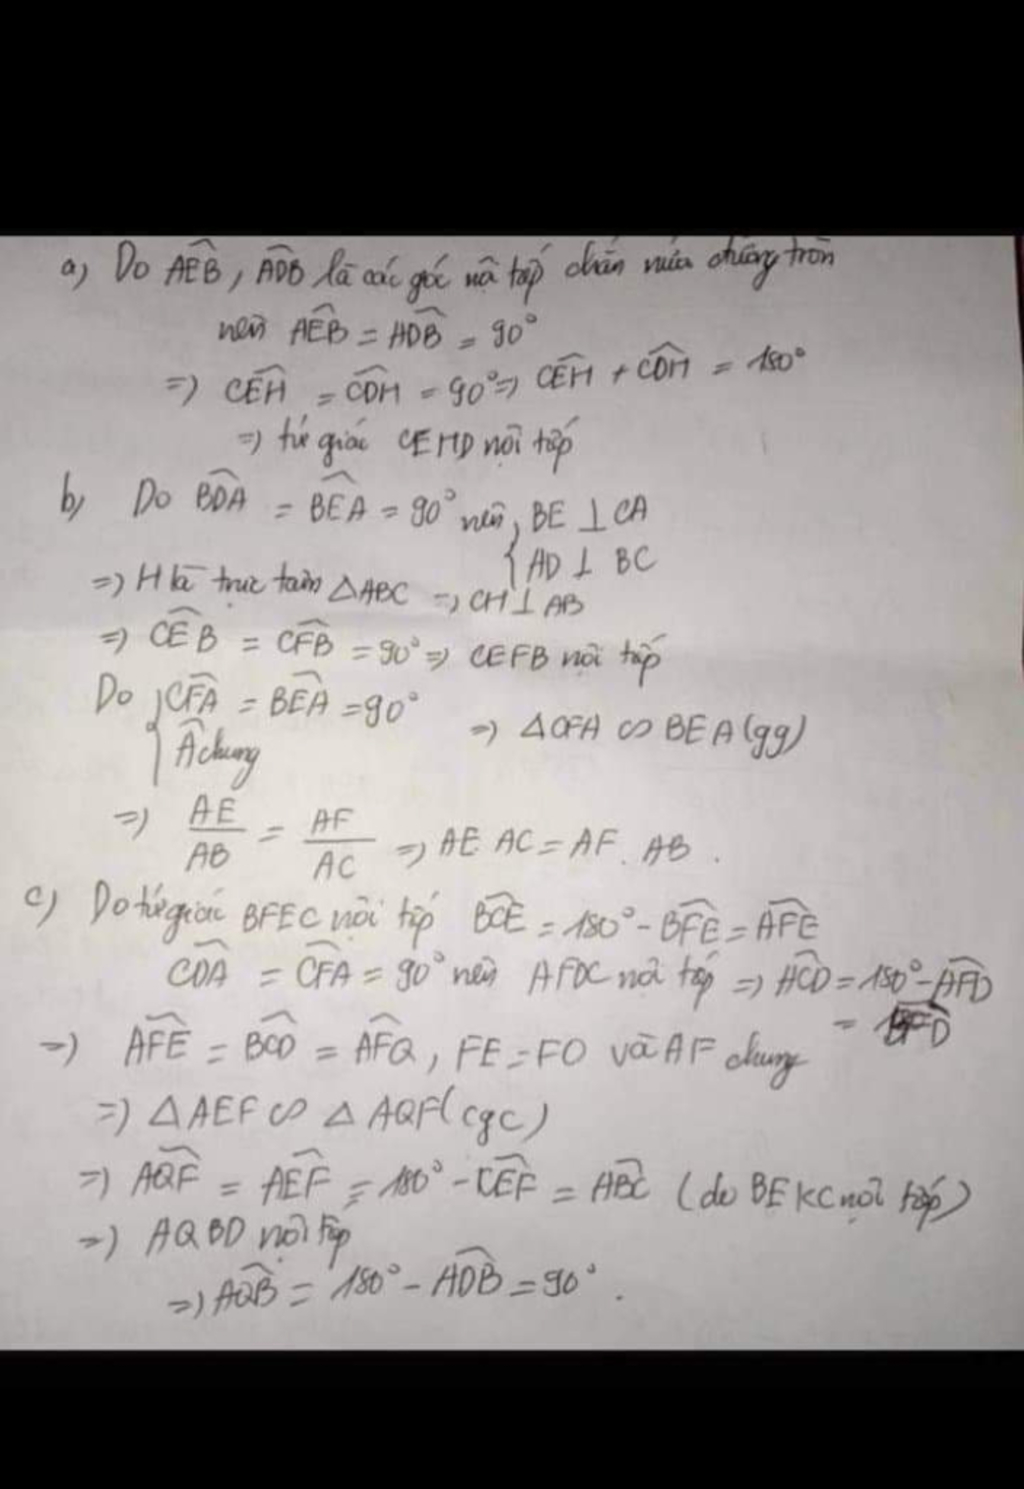 a) Do AEB, ADB là các góc nội tiếp chắn nửa đường tròn
nên AEB = ADB = 90°
=) CEH = CDH = 90° =) CEH + CDH = 180°
=) tứ giác CEHD nội tiếp
b) Do BDA = BEA = 90° nên { BE ⊥ CA
{ AD ⊥ BC
=) H là trực tâm △ABC =) CH ⊥ AB
=) CEB = CFB = 90° =) CEFB nội tiếp
Do { CFA = BEA = 90°
{ A chung =) △CFA ∽ BEA (gg)
=) AE/AB = AF/AC =) AE AC = AF. AB.
c) Do tứ giác BFEC nội tiếp BCE = 180° - BFE = AFE
CDA = CFA = 90° nên AFDC nội tiếp =) ACD = 180° - AFD
= BFD
=) AFE = BCD = AFQ, FE = FQ và AF chung
=) △AEF ∽ △AQF (cgc)
=) AQF = AEF = 180° - CEF = ABC (do BEKC nội tiếp)
=) AQBD nội tiếp
=) AQB = 180° - ADB = 90°.